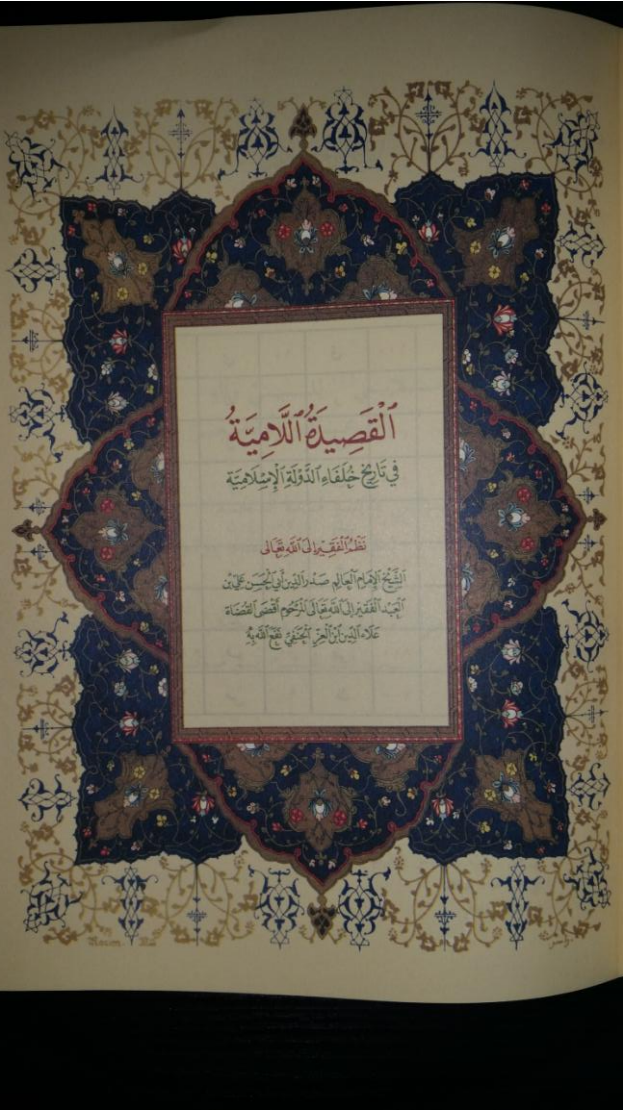 ٱلْقَصِيدَةُ ٱللَّامِيَّةُ
فِي تَارِيخِ خُلَفَاءِ ٱلدَّوْلَةِ ٱلْإِسْلَامِيَّةِ
نَظْمُ ٱلْفَقِيرِ إِلَى ٱللَّهِ تَعَالَى
ٱلشَّيْخِ ٱلْإِمَامِ ٱلْعَالِمِ صَدْرِ ٱلدِّينِ أَبِي ٱلْحَسَنِ عَلِيِّ بْنِ
ٱلْعَبْدِ ٱلْفَقِيرِ إِلَى ٱللَّهِ تَعَالَى ٱلْمَرْحُومِ أَقْضَى ٱلْقُضَاةِ
عَلَاءِ ٱلدِّينِ ٱبْنِ ٱلْعِزِّ ٱلْحَنَفِيِّ نَفَعَ ٱللَّهُ بِهِ